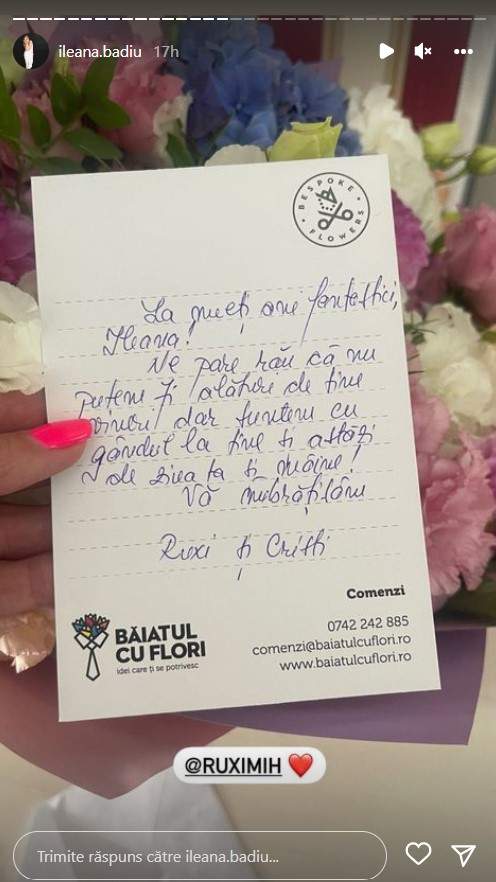 ileana.badiu 17h
BESPOKE FLOWERS
La mulți ani fantastici,
Ileana!
Ne pare rău că nu
putem fi alături de tine
vineri, dar suntem cu
gândul la tine și astăzi
de ziua ta și mâine!
Vă îmbrățișăm
Ruxi și Cristi
Comenzi
0742 242 885
comenzi@baiatulcuflori.ro
www.baiatulcuflori.ro
BĂIATUL
CU FLORI
idei care ți se potrivesc
@RUXIMIH ❤️
Trimite răspuns către ileana.badiu...